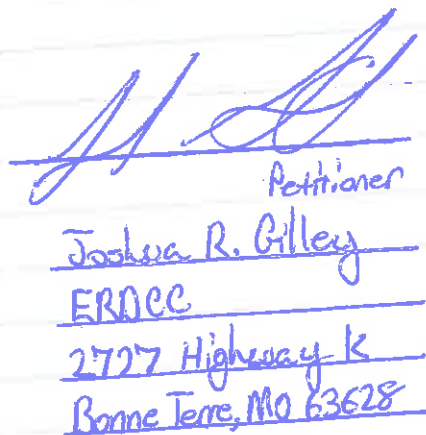 Petitioner
Joshua R. Gilley
ERDCC
2727 Highway K
Bonne Terre, MO 63628